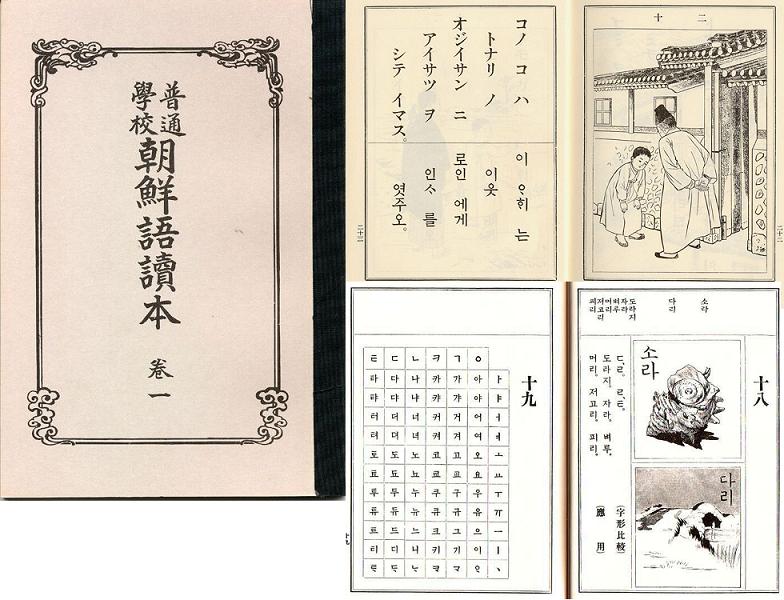 普通
學校
朝鮮語讀本
卷一
コノ コ ハ
トナリ ノ
オジイサン ニ
アイサツ ヲ
シテ イマス。
이 ᄋᆞ희 는
이웃
로인 에게
인ᄉᆞ 를
엿주오。
二十
十九
ㅌ ㄷ ㄴ ㅋ ㄱ ㅇ
타 다 나 카 가 아 ㅏ
탸 댜 냐 캬 갸 야 ㅑ
터 더 너 커 거 어 ㅓ
텨 뎌 녀 켜 겨 여 ㅕ
토 도 노 코 고 오 ㅗ
툐 됴 뇨 쿄 교 요 ㅛ
투 두 누 쿠 구 우 ㅜ
튜 듀 뉴 큐 규 유 ㅠ
트 드 느 크 그 으 ㅡ
티 디 니 키 기 이 ㅣ
ᄐᆞ ᄃᆞ ᄂᆞ ᄏᆞ ᄀᆞ ᄋᆞ ㆍ
十九
十八
소라
다리
도라지
자라
벼루
머리
저고리
피리
소라
다리
ㄷ,ㄹ。 ㄹ,ㅌ。 (字形比較)
도라지. 자라. 벼루. (應用)
머리. 저고리. 피리.